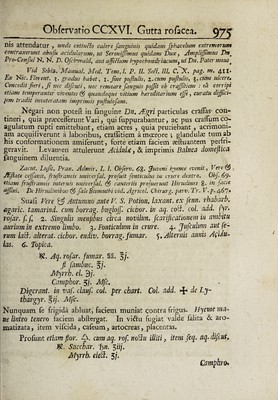 Observatio CCXVI. Gutta rosacea. 975
nis attendatur, mox extincto calore sanguinis quidam sphacelum extremorum
contraxerunt obesis acidularum, ut Serenissimus quidam Dux, Amplissimus Dn.
Pro-Consul N. N. P. Oschwald, aut affectum hypochondriacum, ut Dn. Pater meus,
Vid Sebiz. Manual. Med. Tom. I. P. II. Sect. III. C. X. pag. m. 411.
Ex Nic. Florent. 2. gradus habet. 1. sine pustulis, 2. cum pustulis, 3. cum ulcere.
Concedit fieri, si non discuti, nec removere sanguis possit ob crassitiem: ea corripi
etiam temperatè viventes & quandoque vitium hæreditarium esse, curatu difficilem
tradit inveteratam inprimis pustulosam.
Negari non potest in sanguine Dn. Agri particulas crassas contineri,
quia præcesserunt Vari, qui suppurabantur, ac pus crassum coagulatum
rupti emittebant, etiam acres, quia pruriebant, acrimoniam
acquisiverunt à laboribus, crassitiem à mœrore; glandulæ tum ab
his conformationem amiserunt, forte etiam faciem æstuantem perfrigeravit.
Levamen attulerunt Acidulæ, & imprimis Balnea domestica
sanguinem diluentia.
Zacut. Lusit. Prax. Admir. L. I. Observ. 63. Juveni hyeme evenit, Vere &
Æstate cessavit, frustraneis universal. profuit fonticulus in crure dextro. Obs. 65.
etiam frustraneis novenis universal. & cauteriis profuerunt Hirudines 8. in facie
affixi. De Hirudinibus & sale Bismuthi vid. Agricol. Chirurg. parv. Tr. V. p. 467.
Suasi Vere & Autumno ante V. S. Potion. laxant. ex senn. rhabarb.
agaric. tamarind. cum borrag. bugloss. cichor. in aq. coct. col. add. syr.
rosar. s. s. 2. Singulis mensibus circa novilun. scarificationem in ambitu
aurium in extremo limbo. 3. Fonticulum in crure. 4. Jusculum aut serum
lact. alterat. cichor. endiv. borrag. fumar. 5. Alternis annis Acidulas.
6. Topica.
℞. Aq. rosar. fumar. aa. ℥j.
fl sambuc. ℥j.
Myrrh. el. ʒj.
Camphor. ℥j. Msc.
Digerant. in vas. claus. col. per chart. Col. add. + de Lythargyr.
℥ij. Msc.
Nunquam se frigida abluat, faciem muniat contra frigus. Hyeme mane
linteo tenero faciem abstergat. In victu fugiat valde salita & aromatizata,
item viscida, caseum, artocreas, placentas.
Prosunt etiam flor. cum aq. ros. noctu illiti, item seq. aq. discus,
℞. Sacchar. ♄n. ℥iij.
Myrrh. elect. ℥j.
Camphro.